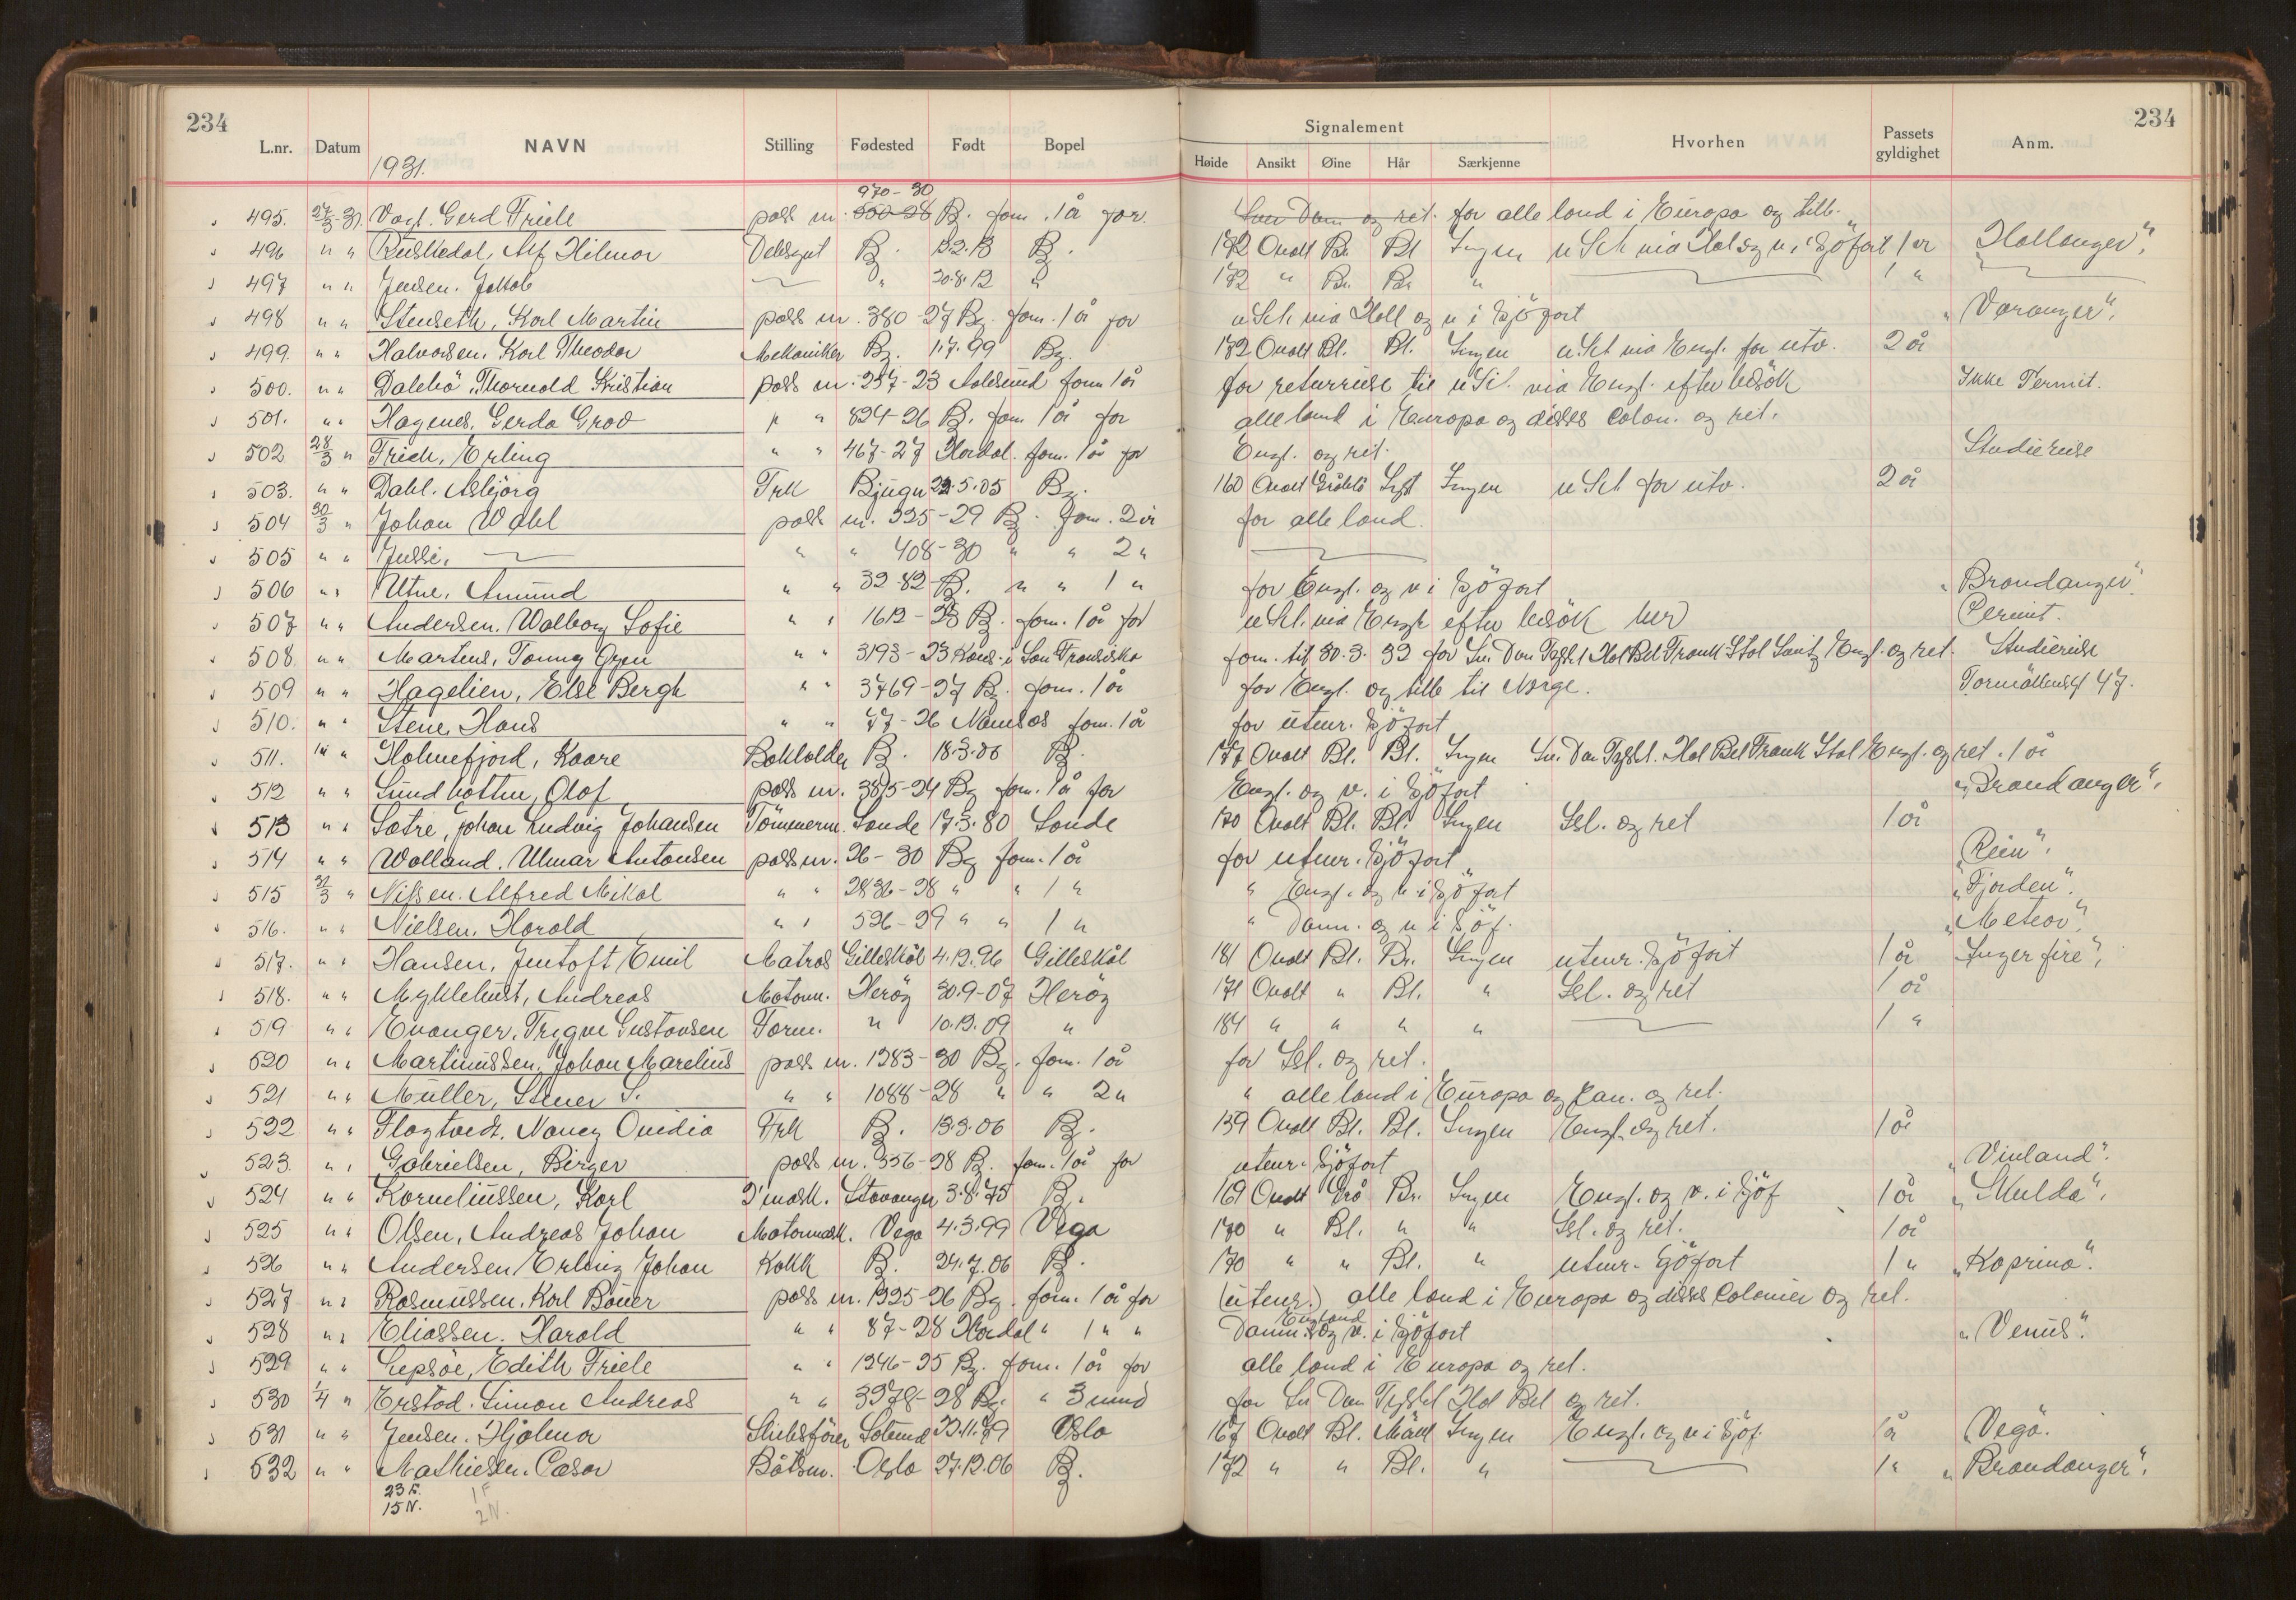 234
234
L.nr. Datum NAVN Stilling Fødested Født Bopel Signalement Hvorhen Passets gyldighet Anm.
Høide Ansikt Øine Hår Særkjenne
1931.
970-30
495. 27/3-31. Vogt. Gerd Friele pass nr. 550-28 Bg. forn. 1 år for. for alle land i Europa og tilb.
496 " " Alf Hilmar Bg. 13.2.13 Bg. 172 Ovalt Bl. Bl. Ingen u Sch via Hol og v. i Sjöfart 1 år "Hallanger".
497 " " Jensen. Jakob " 20.8.12 " 172 " Br. Br. " 1 "
498 " " Stenseth, Karl Martin pass nr. 380-27 Bg. forn. 1 år for u Sch via Holl og v i Sjöfart "Varanger".
499. " " Halvorsen. Karl Theodor Mekaniker Bg. 1.7.99 Bg. 172 Ovalt Bl. Bl. Ingen u Sch via Engl. for utv. 2 år
500. " " Dalebö, Thorvald Kristian pass nr. 257-23 Aalesund forn 1 år for returreise til u Sch. via Engl. efter besök Ikke Permit.
501. " " Hagenes, Gerda Grov " " 824-26 Bg. forn 1 år for alle land i Europa og disses Colon. og ret.
502 28/3 " Erling " " 467-27 Hordal. forn. 1 år for Engl. og ret. Studiereise
503. " " Dahl. Asbjörg Frk Bjugn 22.5.05 Bg. 160 Ovalt Gråblå Lyst Ingen u Sch for utv. 2 år
504 30/3 " Johan Wahl pass nr. 325-29 Bg. forn. 2 år for alle land.
505 " " Jussi. " " 408-30 " " 2 "
506 " " Utne, Amund " " 32-82 Bg. " " 1 " for Engl. og v i Sjöfart "Brandanger".
507 " " Andersen. Walborg Sofie " " 1612-28 Bg. forn. 1 år for u Sch. via Engl. efter besök her Permit.
508. " " Martens, Tonny " " 3193-23 Kons. i San Fransisko forn. til 30.3.32 for Sv. Dan Tyskl Hol Bel Frank Ital Engl. og ret. Studiereise
509 " " Hagelien, Else Bergh " " 3769-27 Bg. forn. 1 år for Engl. og tilb til Norge. 47.
510. " " Stene, Hans " " 77-26 Namsos forn. 1 år for utenr. Sjöfart
511. " " Holmefjord, Kaare Bokholder Bg. 18.3.06 Bg. 177 Ovalt Bl. Bl. Ingen Sv. Dan Tyskl. Hol Bel Frank Ital Engl. og ret. 1 år
512 " " Olaf pass nr. 3815-24 Bg forn. 1 år for Engl. og v. i Sjöfart "Brandanger".
513 " " Sætre, Johan Ludvig Johansen Tömmerm. Sande 17.3.80 Sande 170 Ovalt Bl. Bl. Ingen Isl. og ret 1 år
514 " " Wolland. Ulmar Antonsen pass nr. 26-30 Bg forn. 1 år for utenr. Sjöfart "Rein".
515 31/3 " Nissen. Alfred Mikal " " 2836-28 " " 1 " " Engl. og v. i Sjöfart "Fjorden".
516. " " Nielsen. Harald " " 526-29 " " 1 " " Danm. og v i Sjöf. "Meteor".
517. " " Hansen, Jentoft Emil Matros Gilleskål 4.12.96 Gilleskål 181 Ovalt Bl. Br. Ingen utenr. Sjöfart 1 år "Ingerfire".
518. " " Myklebust, Andreas Motorm. Heröy 30.9-07 Heröy 171 Ovalt " Bl. " Isl. og ret 1 år
519 " " Evanger. Trygve Gustavsen Form. " 10.12.09 " 184 " " " " 1 "
520 " " Martinussen, Johan Marelius pass nr. 1383-30 Bg. forn. 1 år for Isl. og ret.
521 " " Müller, Stener S. " " 1088-28 " " 2 " " alle land i Europa og Kan. og ret.
522 " " Flagtvedt. Nancy Ovidia Frk Bg. 13.3.06 Bg. 159 Ovalt Bl. Bl. Ingen Engl. og ret. 1 år
523. " " Gabrielsen, Birger pass nr. 356-28 Bg. forn. 1 år for utenr. Sjöfart "Vinland".
524 " " Korneliussen, Karl D'mask. Stavanger 3.8.75 Bg. 169 Ovalt Grå Br. Ingen Engl. og v. i Sjöf 1 år "Skulda".
525 " " Olsen, Andreas Johan Motormask. Vega 4.3.99 Vega 170 " Bl. " " Isl. og ret. 1 år
526 " " Andersen Erling Johan Kokk Bg. 24.7.06 Bg. 170 " " Bl. " utenr. Sjöfart 1 " "Kaprino".
527 " " Rasmussen. Karl Böner pass nr. 1325-26 Bg. forn. 1 år for (utenr.) alle land i Europa og disses Colonier og ret.
England
528 " " Eliassen. Harald " " 87-28 Hordal " 1 " " Danm. og v. i Sjöfart "Venus".
529 " " Lepsöe, Edith Friele " " 1246-25 Bg. forn. 1 år for alle land i Europa og ret.
530 1/4 " Erstad. Simon Andreas " " 3978-28 Bg. " 3 mnd for Sv Dan Tyskl Hol Bel og ret.
531 " " Jensen. Hjalmar Skibsförer Solund 23.11.79 Oslo 167 Ovalt Bl. Mörkt Ingen Engl. og v i Sjöf. 1 år "Vega".
532 " " Mathiesen. Cæsar Båtsm. Oslo 27.12.06 Bg. 172 " " Bl. " 1 " "Brandanger".
23 F.
15 N.
1 F
2 N.